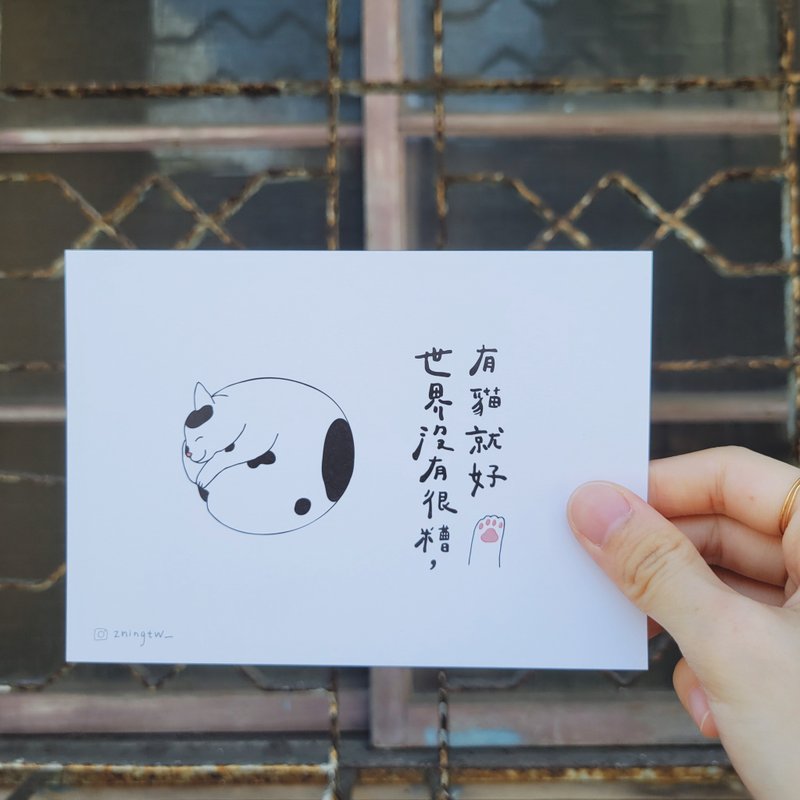 世界沒有很糟，
有貓就好
zningtw_